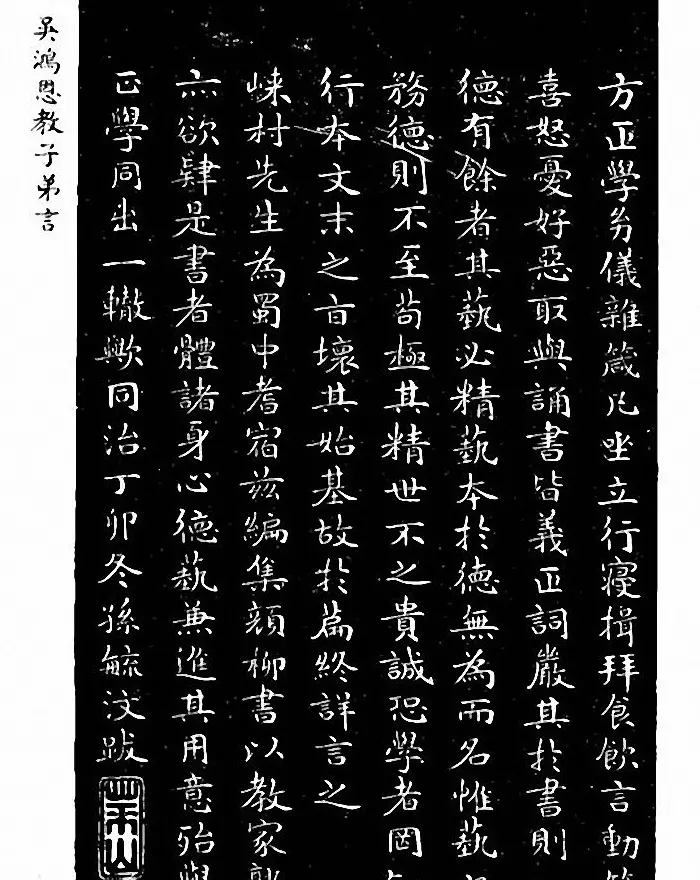 方正學幼儀雜箴凡坐立行寢揖拜食飲言動
喜怒憂好惡取與誦書皆義正詞嚴其於書則
德有餘者其藝必精藝本於德無為而名惟藝
務德則不至苟極其精世不之貴誠恐學者罔
行本文末之旨壞其始基故於篇終詳言之
崍村先生為蜀中耆宿茲編集顏柳書以教家
亦欲肄是書者體諸身心德藝兼進其用意殆與
正學同出一轍歟同治丁卯冬孫毓汶跋
吳鴻恩教子弟言